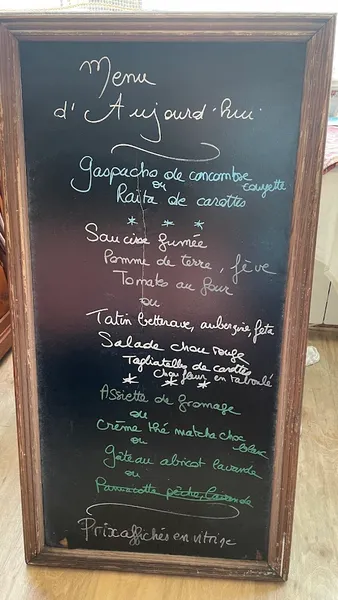 Menu
d'Aujourd'hui
Gaspacho de concombre
courgette
ou
Raita de carottes
* * *
Saucisse fumée
Pomme de terre, fève
Tomate au four
ou
Tatin betterave, aubergine, feta
Salade chou rouge
Tagliatelles de carottes
Chou fleur en taboulé
* * *
Assiette de fromage
ou
Crème thé matcha choc
blanc
ou
Gâteau abricot lavande
ou
Pannacotta pêche, lavande
Prix affichés en vitrine